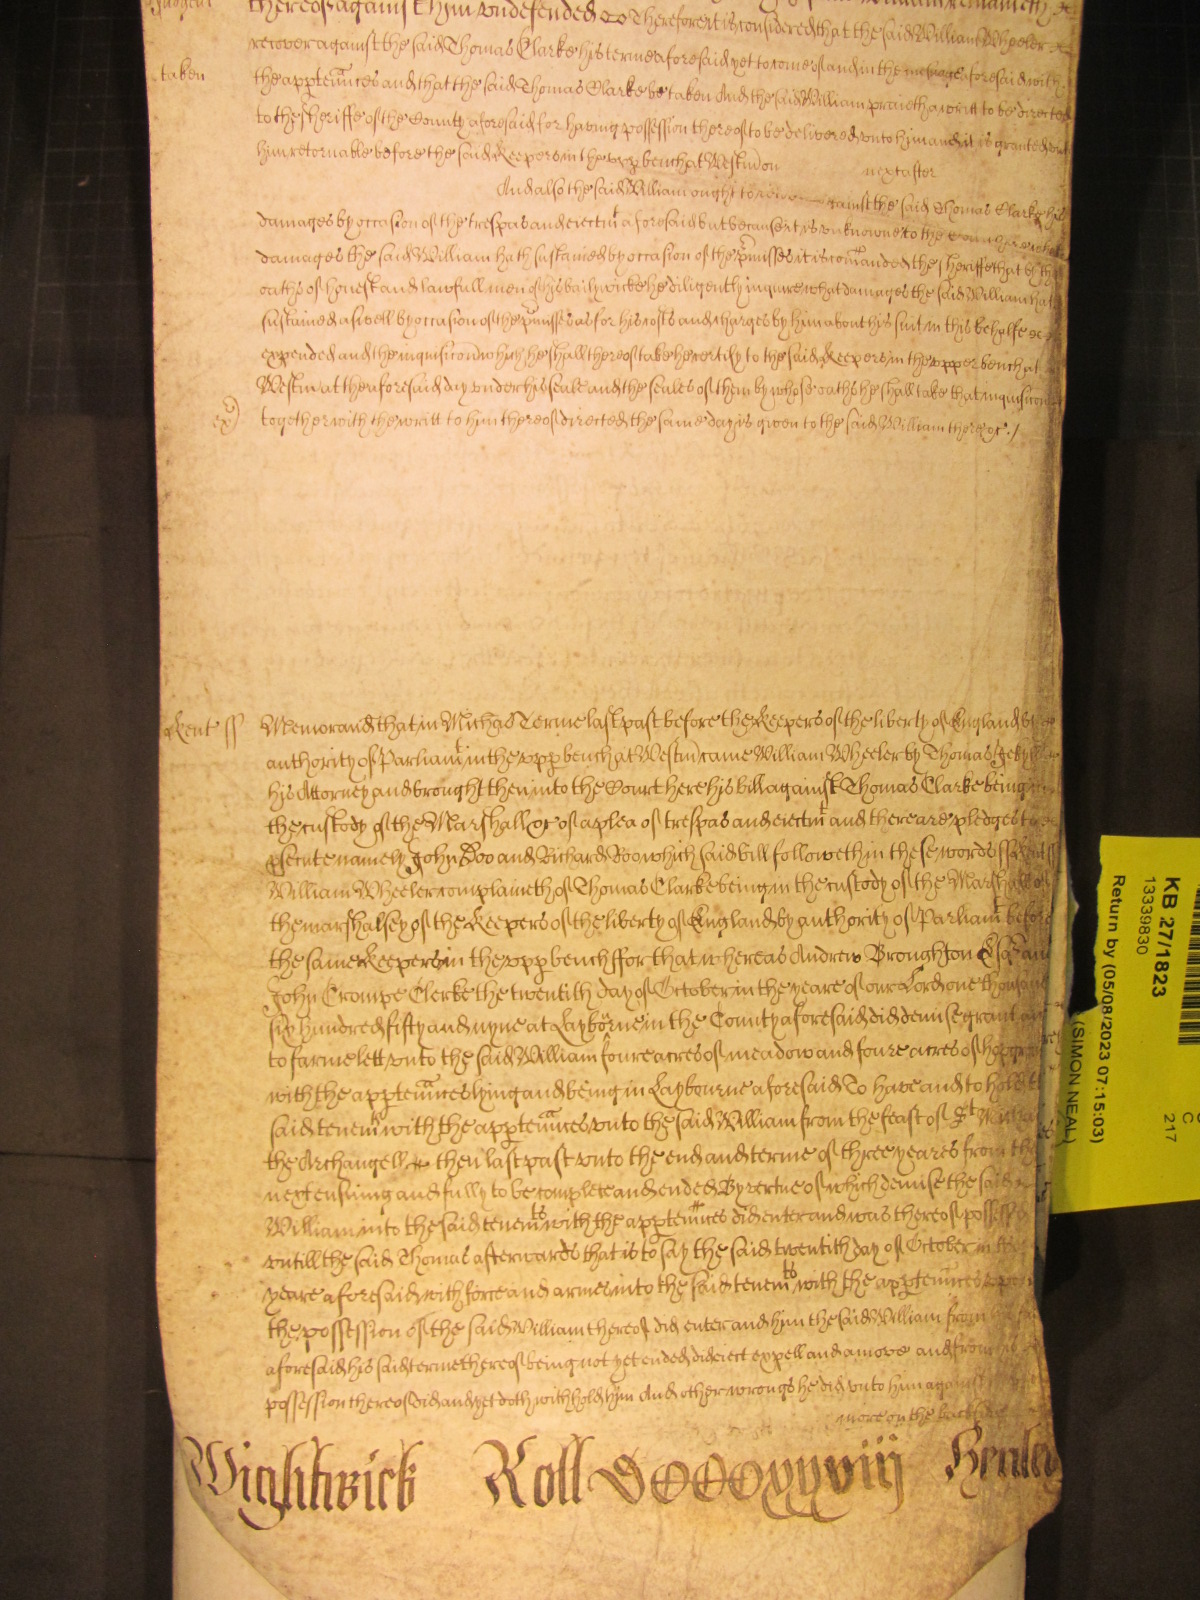 Judgem
thereof against him undefended &c Therefore it is considered that the said William Wheeler
recover against the said Thomas Clarke his terme aforesaid yet to come of and in the aforesaid with
taken
the apptenñces and that the said Thomas Clarke be taken And the said William praieth a writt to be directed
to the Sheriffe of the County aforesaid for having possession thereof to be delivered unto him and it is granted unto
him retornable before the said Keepers in the upp bench at Westm on next after
And also the said William ought to recover against the said Thomas Clarke his
damages by occasion of the trespas and eiectmt aforesaid but because it is unknowne to the Court here what
damages the said William hath sustained by occasion of the pmisses it is comanded the sheriffe that by the
oathes of honest and lawfull men of his bailywicke he diligently inquire what damages the said William hath
sustained aswell by occasion of the pmisses as for his costs and charges by him about his suit in this behalfe
expended and the inquisicon which he shall thereof take he certify to the said Keepers in the upper bench at
Westm at the aforesaid day under his seale and the seales of them by whose oathes he shall take that inquisicon
together with the writt to him thereof directed the same day is given to the said William there &c./
Kent ss
Memorand that in Michas Terme last past before the Keepers of the liberty of England by
authority of Parliamt in the upp bench at Westm came William Wheeler by Thomas
his Attorney and brought then into the Court here his bill against Thomas Clarke being in
the custody of the Marshall &c of a plea of trespas and eiectmt and there are pledges
psecute namely John Doo and Richard Roo which said bill followeth in these words ss Kent ss
William Wheeler complaineth of Thomas Clarke being in the custody of the Marshall of
the marshalsey of the Keepers of the liberty of England by authority of Parliamt before
the same Keepers in the upp bench ffor that whereas Andrew Broughton Esq and
John Crompe Clerke the twentith day of October in the yeare of our Lord one thousand
six hundred fifty and nyne at Layborne in the County aforesaid did demise grant and
to farme lett unto the said William foure acres of meadow and foure acres of
with the apptenñces lying and being in Laybourne aforesaid To have and to hold the
said tenemts with the apptenñces unto the said William from the feast of St Michael
the Archangell then last past unto the end and terme of three yeares from
next ensuing and fully to be complete and ended By vertue of which demise the said
William into the said tenemts with the apptenñces did enter and was thereof possessed
untill the said Thomas afterwards that is to say the said twentith day of October in the
yeare aforesaid with force and armes into the said tenemts with the apptenñces upon
the possession of the said William thereof did enter and him the said William from
aforesaid his said terme thereof being not yet ended did eiect expell and amove and from
possession thereof did and yet doth withhold him And other wrongs he did unto him against
more on the backside
Wightwick Roll DCCCCxxviij Henley
KB 27/1823
13339830
Return by (05/08/2023 07:15:03)
(SIMON NEAL)
C
217